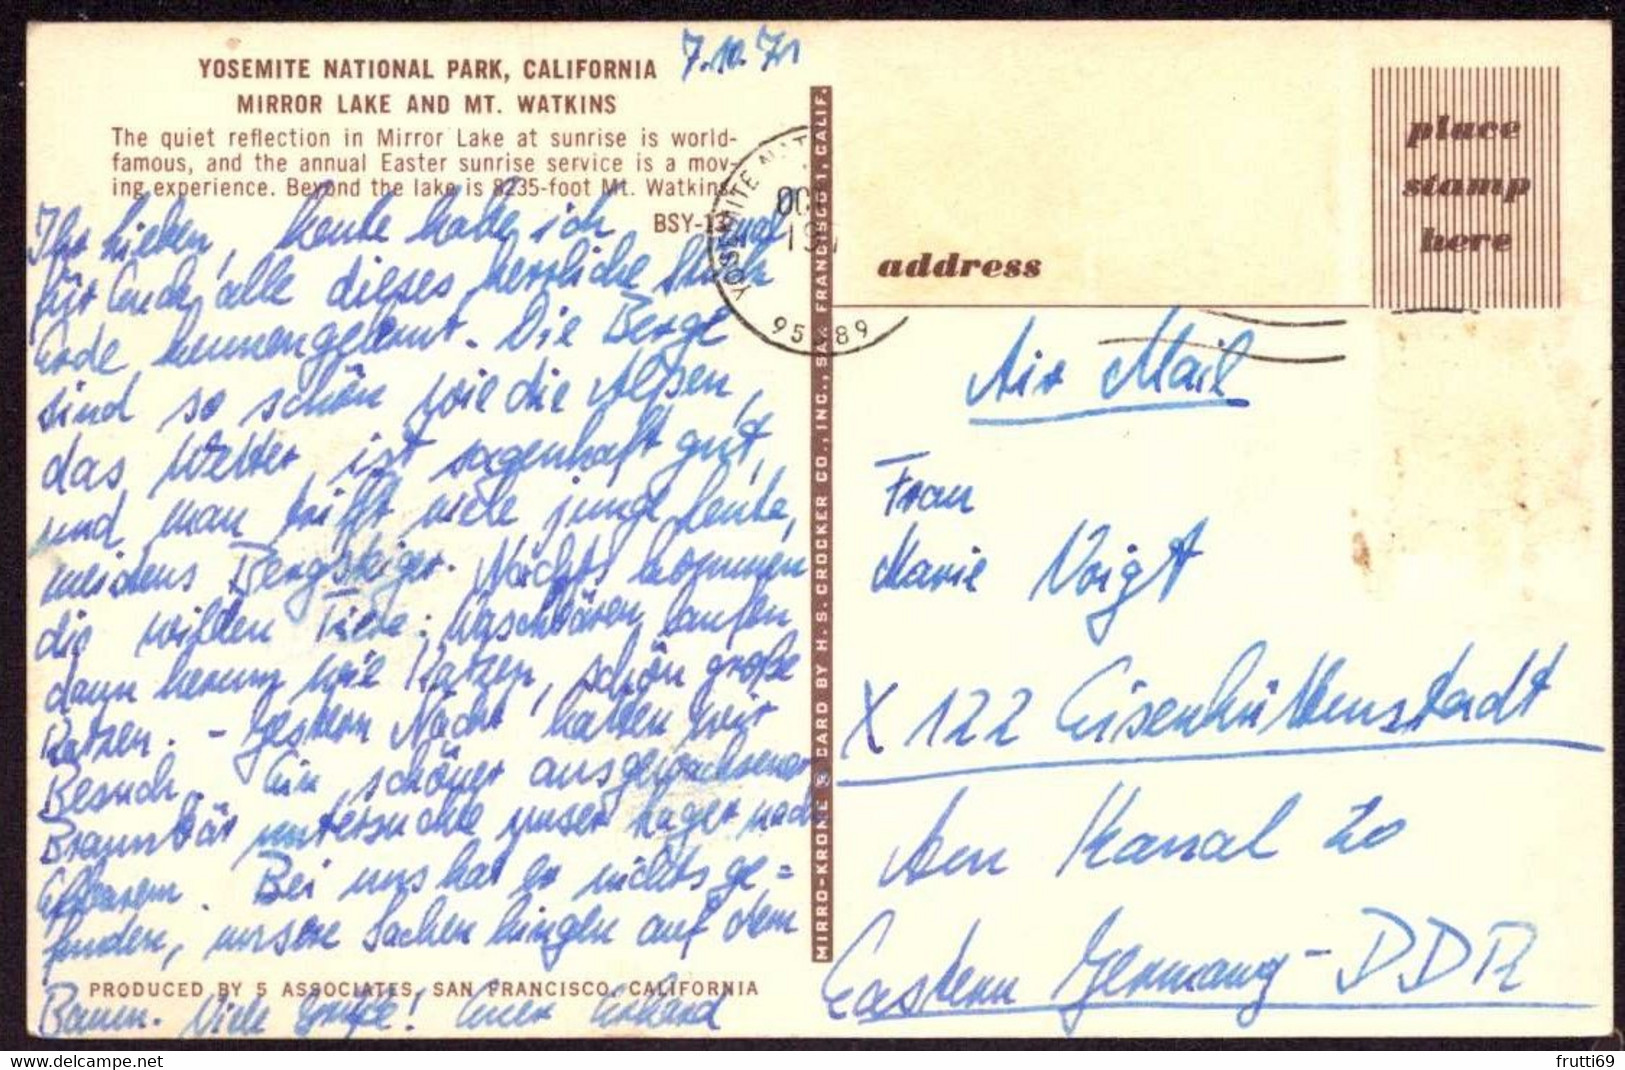 7.10.71
YOSEMITE NATIONAL PARK, CALIFORNIA
MIRROR LAKE AND MT. WATKINS
The quiet reflection in Mirror Lake at sunrise is world-
famous, and the annual Easter sunrise service is a mov-
ing experience. Beyond the lake is 8235-foot Mt. Watkins.
BSY-13
Ihr Lieben, heute habe ich mal
für Euch alle dieses herrliche Stück
Erde kennengelernt. Die Berge
sind so schön wie die Alpen,
das Wetter ist sagenhaft gut,
und man trifft viele junge Leute,
meistens Bergsteiger. Nachts kommen
die wilden Tiere: Waschbären laufen
dann herum wie Katzen, schön große
Katzen. - Gestern Nacht hatten wir
Besuch. Ein schöner ausgewachsener
Braunbär untersuchte unser Lager nach
Eßbarem. Bei uns hat er nichts ge=
funden, unsere Sachen hingen auf dem
Baum. Viele Grüße! Euer Erhard
PRODUCED BY 5 ASSOCIATES, SAN FRANCISCO, CALIFORNIA
YOSEMITE NAT
OCT
197
95389
MIRRO-KROME ® CARD BY H. S. CROCKER CO., INC., SAN FRANCISCO 1, CALIF.
place
stamp
here
address
Air Mail
Frau
Marie Voigt
X 122 Eisenhüttenstadt
Am Kanal 20
Eastern Germany - DDR
frutti69